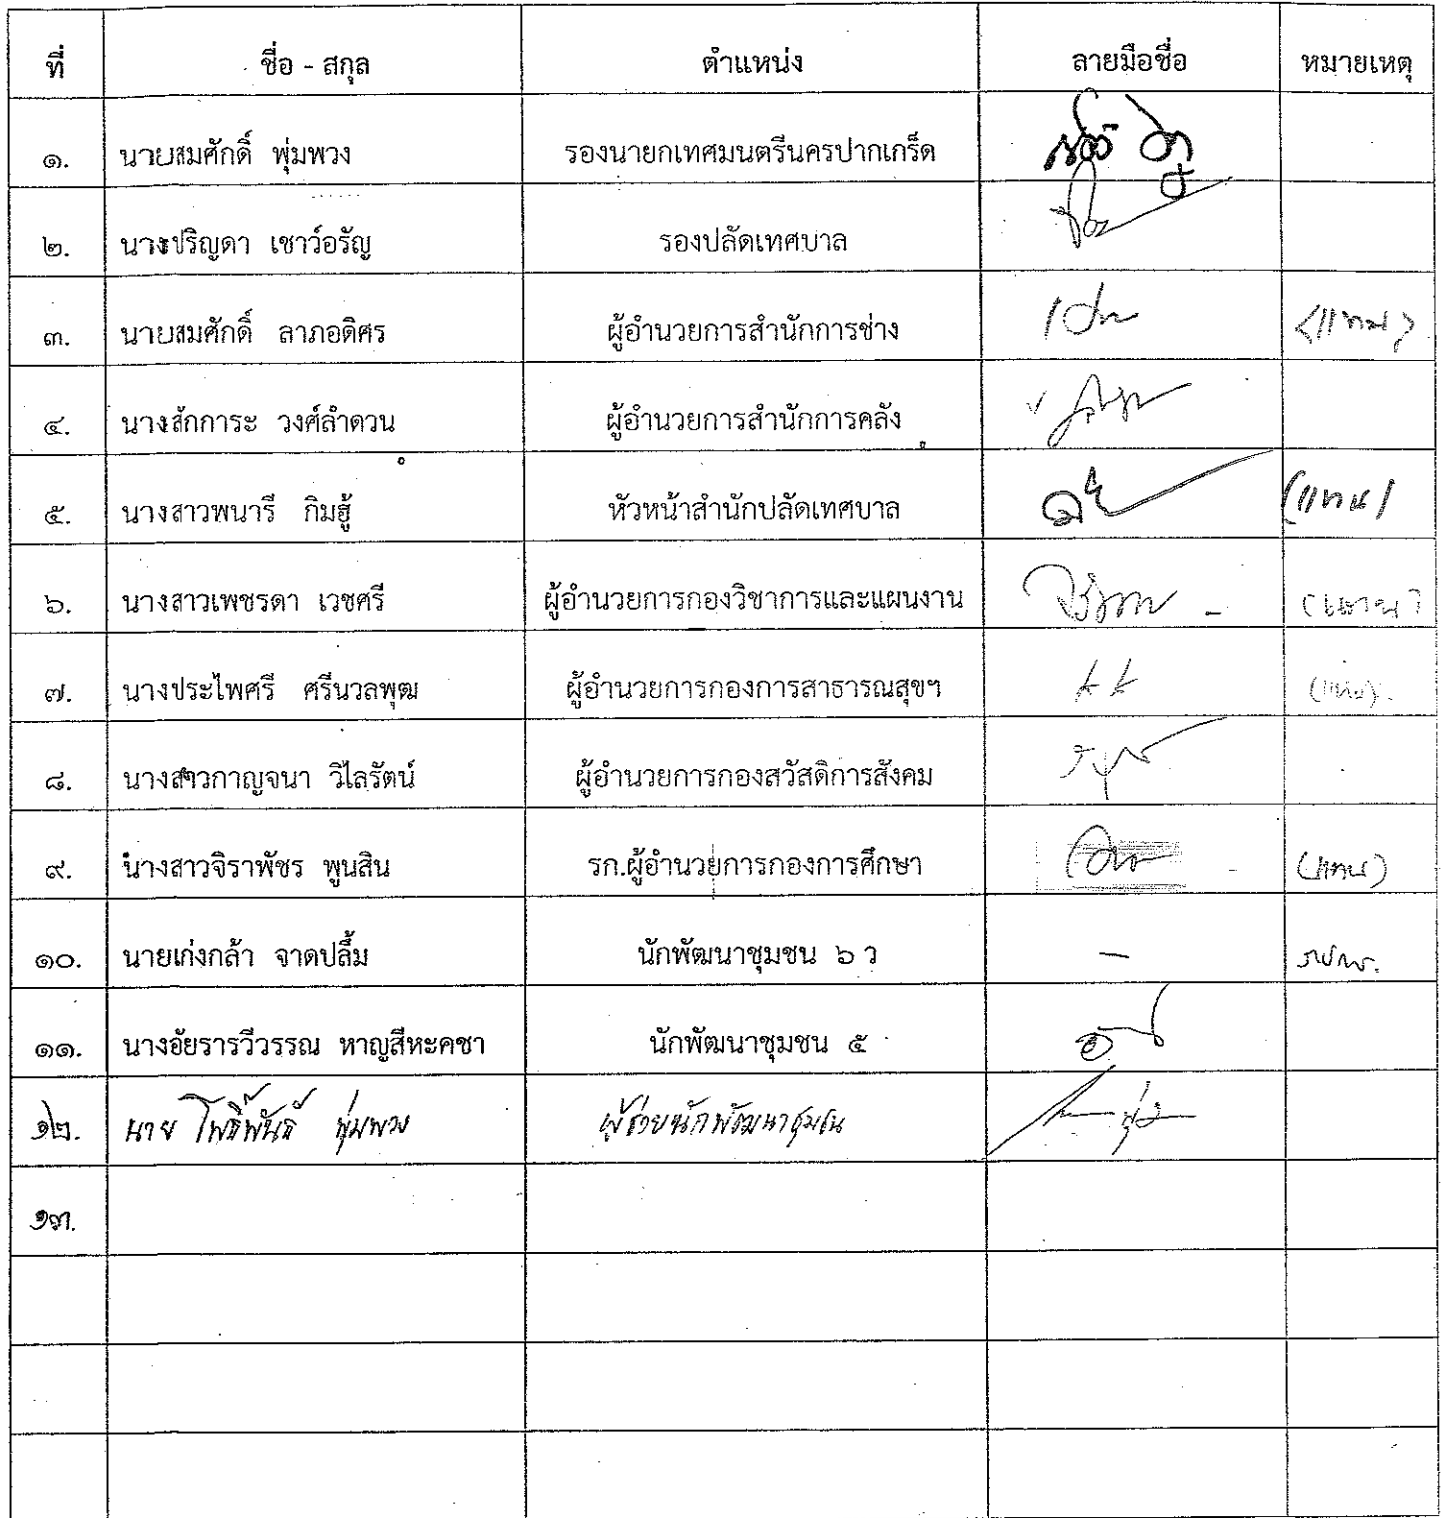 ที่ ชื่อ - สกุล ตำแหน่ง ลายมือชื่อ หมายเหตุ
๑. นายสมศักดิ์ พุ่มพวง รองนายกเทศมนตรีนครปากเกร็ด
๒. นางปริญดา เชาว์อรัญ รองปลัดเทศบาล
๓. นายสมศักดิ์ ลาภอดิศร ผู้อำนวยการสำนักการช่าง (แทน)
๔. นางสักการะ วงศ์ลำดวน ผู้อำนวยการสำนักการคลัง
๕. นางสาวพนารี กิมฮู้ หัวหน้าสำนักปลัดเทศบาล (แทน)
๖. นางสาวเพชรดา เวชศรี ผู้อำนวยการกองวิชาการและแผนงาน (แทน)
๗. นางประไพศรี ศรีนวลพุฒ ผู้อำนวยการกองการสาธารณสุขฯ (แทน)
๘. นางสาวกาญจนา วิไลรัตน์ ผู้อำนวยการกองสวัสดิการสังคม
๙. นางสาวจิราพัชร พูนสิน รก.ผู้อำนวยการกองการศึกษา (แทน)
๑๐. นายเก่งกล้า จาดปลื้ม นักพัฒนาชุมชน ๖ ว -
๑๑. นางอัยรารวีวรรณ หาญสีหะคชา นักพัฒนาชุมชน ๕
๑๒. นาย พุ่มพวง ผู้ช่วยนักพัฒนาชุมชน
๑๓.